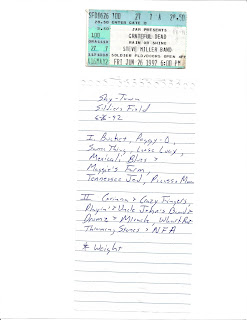 SF0626 TOD 2T 7 A 28.50
28.50 ENTER GATE 0
JAM PRESENTS
GRATEFUL DEAD
RAIN OR SHINE
2T 7 STEVE MILLER BAND
SOLDIER FLD/DOORS OPEN
FRI JUN 26 1992 6:00 PM
Shy-Town
Soldiers Field
6-26-92
I. Bucket, Peggy-O,
Same Thing, Loose Lucy,
Mexicali Blues >
Maggie's Farm,
Tennessee Jed, Promised Land
II Corinna > Crazy Fingers,
Playin' > Uncle John's Band >
Drums > Miracle, Wharf Rat
Throwing Stones > NFA
* Weight